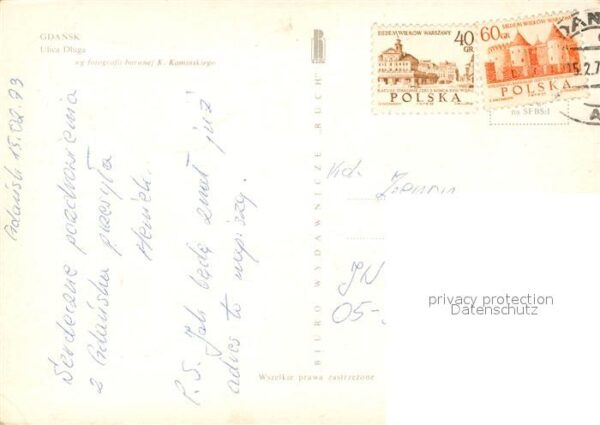 GDAŃSK
Ulica Długa
wg fotografii barwnej K. Kamińskiego
Gdańsk 15.02.73
Serdeczne pozdrowienia
z Gdańska przesyła
Heniek.
P.S. Jak będę znał już
adres to napiszę.
BIURO WYDAWNICZE „RUCH"
Wszelkie prawa zastrzeżone
SIEDEM WIEKÓW WARSZAWY
40 GR
POLSKA
SIEDEM WIEKÓW WARSZAWY
60 GR
POLSKA
na SFBSiI
05-
privacy protection
Datenschutz